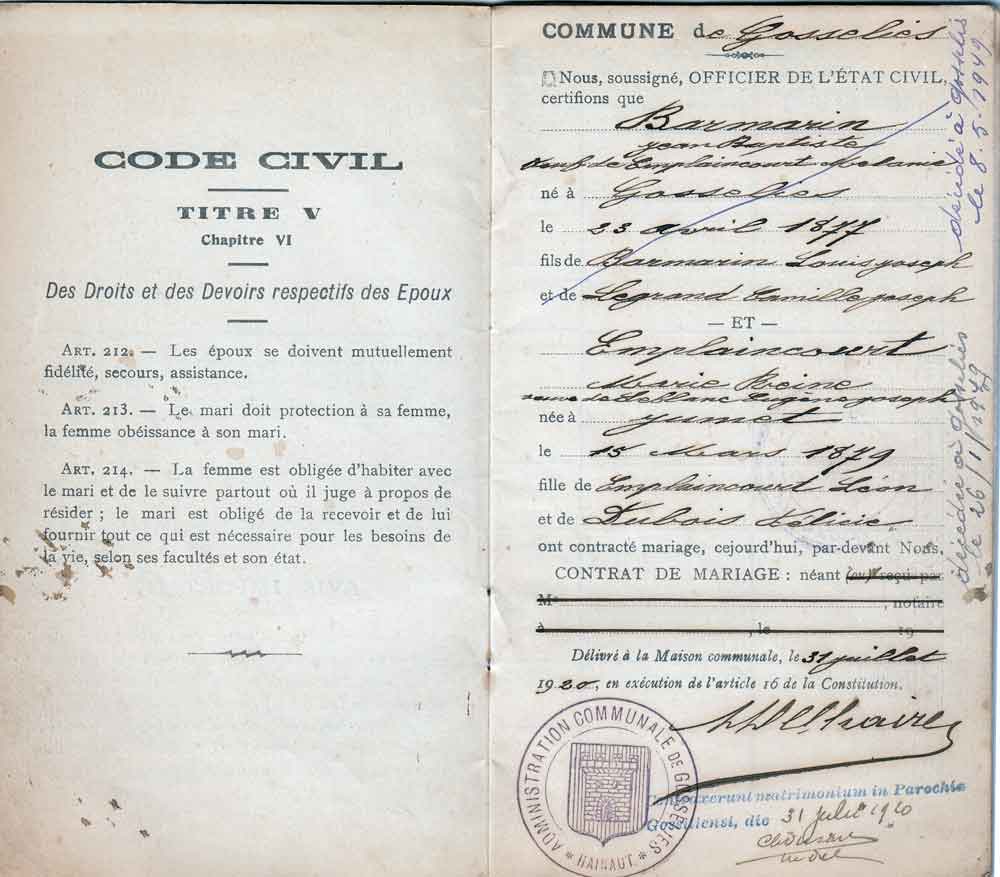 CODE CIVIL
TITRE V
Chapitre VI
Des Droits et des Devoirs respectifs des Epoux
ART. 212. — Les époux se doivent mutuellement
fidélité, secours, assistance.
ART. 213. — Le mari doit protection à sa femme,
la femme obéissance à son mari.
ART. 214. — La femme est obligée d'habiter avec
le mari et de le suivre partout où il juge à propos de
résider ; le mari est obligé de la recevoir et de lui
fournir tout ce qui est nécessaire pour les besoins de
la vie, selon ses facultés et son état.
COMMUNE de Gosselies
Nous, soussigné, OFFICIER DE L'ÉTAT CIVIL,
certifions que
Barmarin
Jean Baptiste
veuf de Emplaincourt Melanie
né à Gosselies
le 23 avril 1877
fils de Barmarin Louis Joseph
et de Legrand Camille Joseph
— ET —
Emplaincourt
Marie Reine
veuve de Leblanc Eugène Joseph
née à Jumet
le 15 Mars 1879
fille de Emplaincourt Léon
et de Dubois Félicie
ont contracté mariage, cejourd'hui, par-devant Nous.
CONTRAT DE MARIAGE : néant (ou) reçu par
Me , notaire
à , le 19
Délivré à la Maison communale, le 31 juillet
1920, en exécution de l'article 16 de la Constitution.
ADMINISTRATION COMMUNALE DE GOSSELIES
* HAINAUT *
Contraxerunt matrimonium in Parochia
Gossiliensi, die 31 julii 1920
décédé à Gosselies
le 8.5.1949
décédée à Gosselies
le 26/1/1949